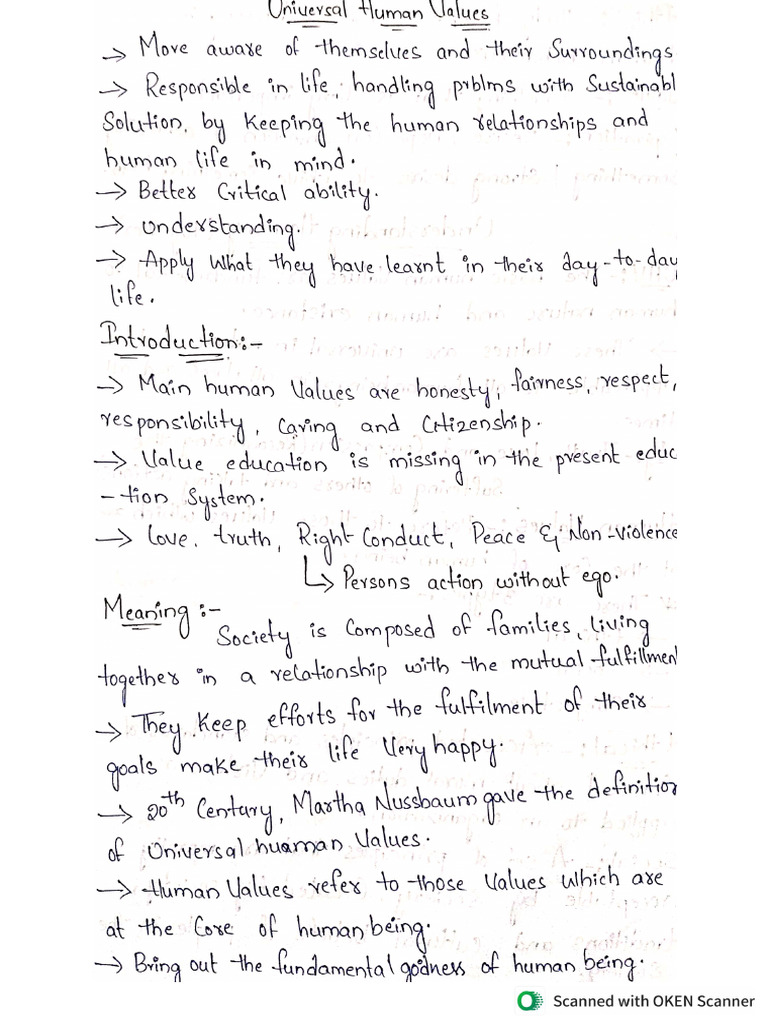 Universal Human Values
→ Move aware of themselves and their Surroundings
→ Responsible in life, handling prblms with Sustainabl
Solution, by Keeping the human relationships and
human life in mind.
→ Better Critical ability.
→ Understanding.
→ Apply What they have learnt in their day-to-day
life.
Introduction:-
→ Main human Values are honesty, fairness, respect,
responsibility, Caring and Citizenship.
→ Value education is missing in the present educ
-tion System.
→ Love, truth, Right Conduct, Peace & Non-Violence
↳ Persons action without ego.
Meaning :-
Society is Composed of families, living
together in a relationship with the mutual fulfillmen
→ They Keep efforts for the fulfilment of their
goals make their life Very happy.
→ 20th Century, Martha Nussbaum gave the definition
of Universal huaman Values.
→ Human Values refer to those Values Which are
at the Core of human being.
→ Bring out the fundamental godness of human being.
Scanned with OKEN Scanner